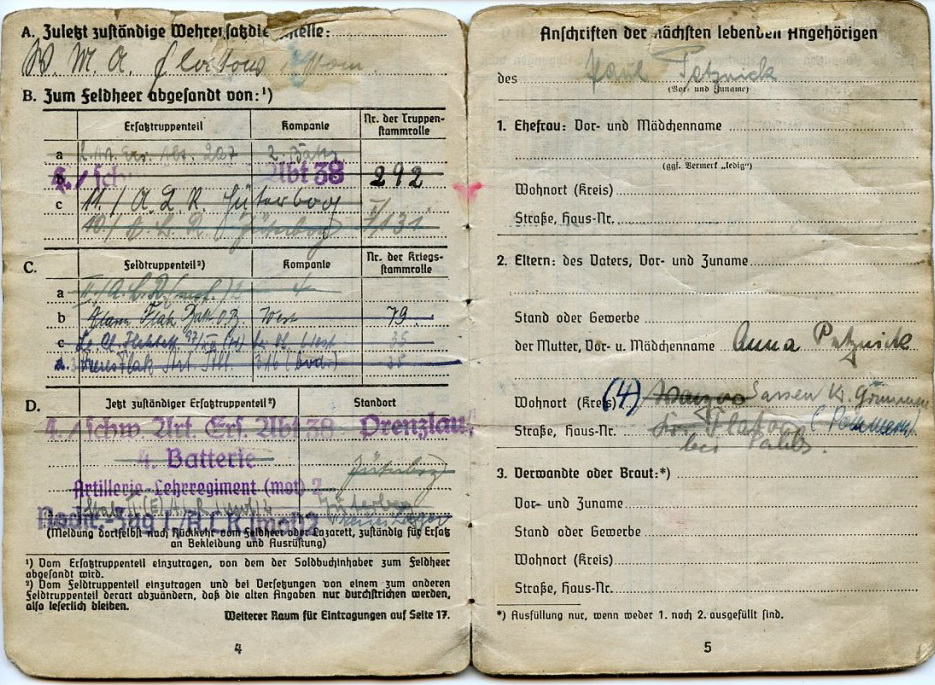 A. Zuletzt zuständige Wehrersatzdienststelle:
W. M. A.
B. Zum Feldheer abgesandt von:¹)
Ersatztruppenteil
Kompanie
Nr. der Truppen-
stammrolle
a
4./schw. Abt 38 292
c 11./ A. L. R. Jüterbog
C. Feldtruppenteil²)
Kompanie
Nr. der Kriegs-
stammrolle
a
b Flak West 79.
c 35
d. 35
D. Jetzt zuständiger Ersatztruppenteil²)
Standort
4./schw. Art. Ers. Abt 38 Prenzlau
4. Batterie Jüterbog
Artillerie-Lehrregiment (mot) 2
Jüterbog
(Meldung dortselbst nach Rückkehr vom Feldheer oder Lazarett, zuständig für Ersatz
an Bekleidung und Ausrüstung)
¹) Vom Ersatztruppenteil einzutragen, von dem der Soldbuchinhaber zum Feldheer
abgesandt wird.
²) Vom Feldtruppenteil einzutragen und bei Versetzungen von einem zum anderen
Feldtruppenteil derart abzuändern, daß die alten Angaben nur durchstrichen werden,
also leserlich bleiben.
Weiterer Raum für Eintragungen auf Seite 17.
4
Anschriften der nächsten lebenden Angehörigen
des Paul Petznick
(Vor- und Zuname)
1. Ehefrau: Vor- und Mädchenname
(ggf. Vermerk „ledig")
Wohnort (Kreis)
Straße, Haus-Nr.
2. Eltern: des Vaters, Vor- und Zuname
Stand oder Gewerbe
der Mutter, Vor- u. Mädchenname Anna Petznick
Wohnort (Kreis) (4) Sassen Kr. Grimmen
Straße, Haus-Nr. (Pommern)
bei
3. Verwandte oder Braut:*)
Vor- und Zuname
Stand oder Gewerbe
Wohnort (Kreis)
Straße, Haus-Nr.
*) Ausfüllung nur, wenn weder 1. noch 2. ausgefüllt sind.
5